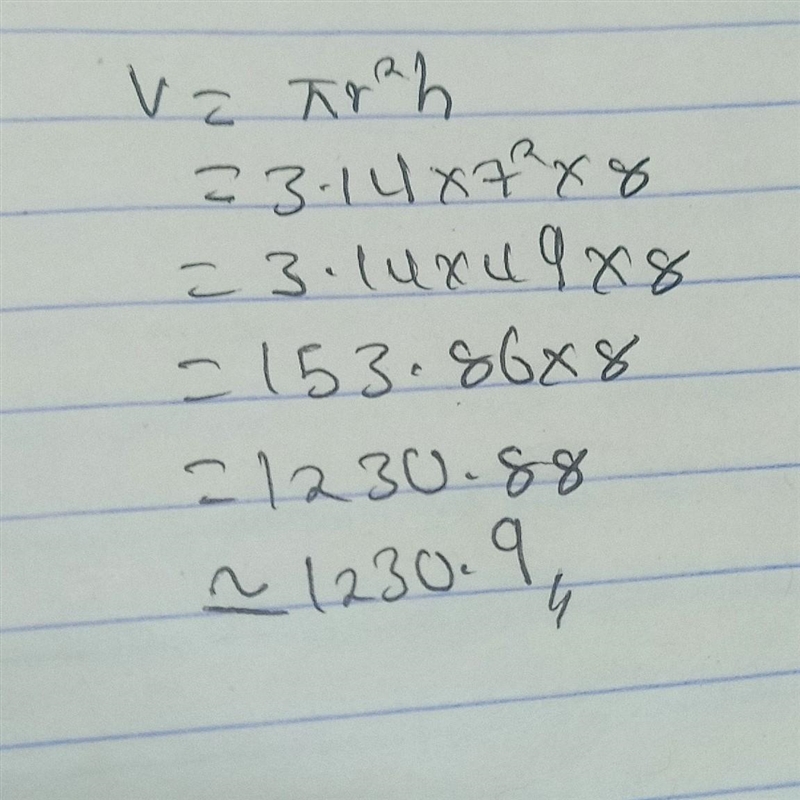 V = πr²h
= 3.14×7²×8
= 3.14×49×8
= 153.86×8
= 1230.88
≃ 1230.9